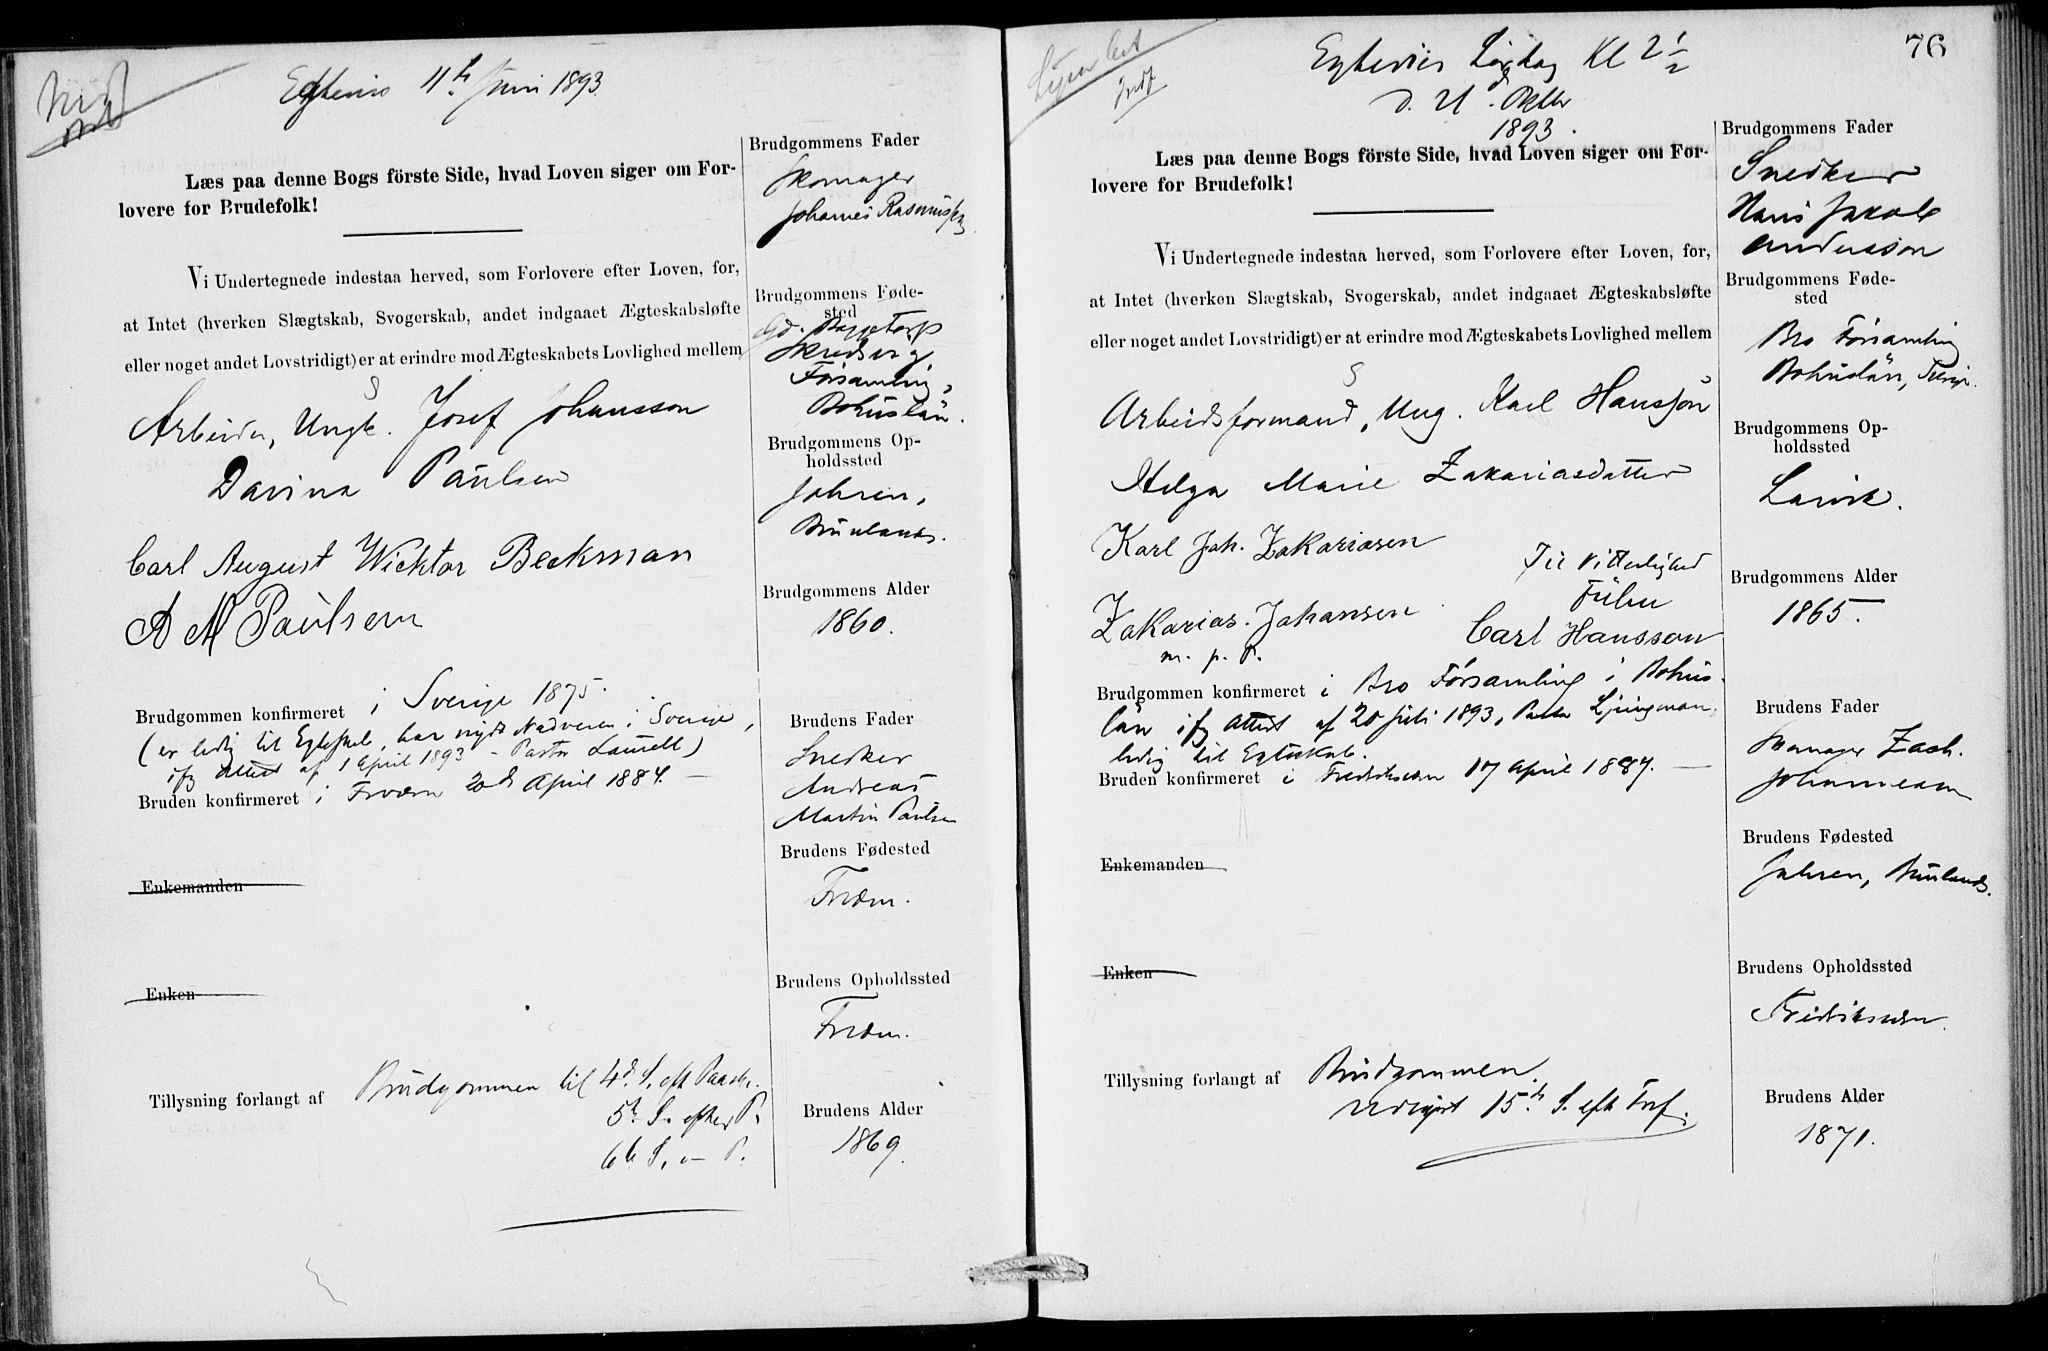 Egtevies 11te Juni 1893
Læs paa denne Bogs förste Side, hvad Loven siger om For-
lovere for Brudefolk!
Vi Undertegnede indestaa herved, som Forlovere efter Loven, for,
at Intet (hverken Slægtskab, Svogerskab, andet indgaaet Ægteskabsløfte
eller noget andet Lovstridigt) er at erindre mod Ægteskabets Lovlighed mellem
Arbeider, Ungk. Josef Johansson
Davina Paulsen
Carl August Wicktor Beckman
A M Paulsen
Brudgommen konfirmeret i Sverige 1875.
(er ledig til Egteskab, har nydt Nadveren i Sverige,
ifg Attest af 1 April 1893 - Pastor Laurell)
Bruden konfirmeret i Fredriksværn 20de April 1884.
Enkemanden
Enken
Tillysning forlangt af Brudgommen til 4de S. eft Paaske.
5te S. efter P.
6te S. " P.
Brudgommens Fader
Skomager
Johannes Rasmussen
Brudgommens Føde-
sted
Skredsvig
Församling,
Bohuslän.
Brudgommens Op-
holdssted
Jahren,
Brunlands.
Brudgommens Alder
1860.
Brudens Fader
Snedker
Andreas
Martin Paulsen
Brudens Fødested
Frværn.
Brudens Opholdssted
Frværn.
Brudens Alder
1869.
76
Egtevies Lørdag Kl 2 1/2
1893.
Læs paa denne Bogs förste Side, hvad Loven siger om For-
lovere for Brudefolk!
Vi Undertegnede indestaa herved, som Forlovere efter Loven, for,
at Intet (hverken Slægtskab, Svogerskab, andet indgaaet Ægteskabsløfte
eller noget andet Lovstridigt) er at erindre mod Ægteskabets Lovlighed mellem
Arbeidsformand, Ung. Karl Hansson
Helga Marie Zakariasdatter
Karl Joh. Zakariasen
Til Vitterlighed
Zakarias. Johansen
Carl Hansson
m. p. P.
Brudgommen konfirmeret i Bro Församling i Bohus-
län ifg Attest af 20 Juli 1893, Pastor Ljungman,
ledig til Egteskab.
Bruden konfirmeret i Fredriksværn 17 April 1887.
Enkemanden
Enken
Tillysning forlangt af Brudgommen.
Udlyst 15de S. eft Tref.
Brudgommens Fader
Snedker
Hans Jakob
Andersson
Brudgommens Føde-
sted
Bro Församling
Bohuslän, Sverige.
Brudgommens Op-
holdssted
Larvik.
Brudgommens Alder
1865.
Brudens Fader
Skomager Zach.
Johannesen
Brudens Fødested
Jahren, Brunlands.
Brudens Opholdssted
Fredriksværn.
Brudens Alder
1871.